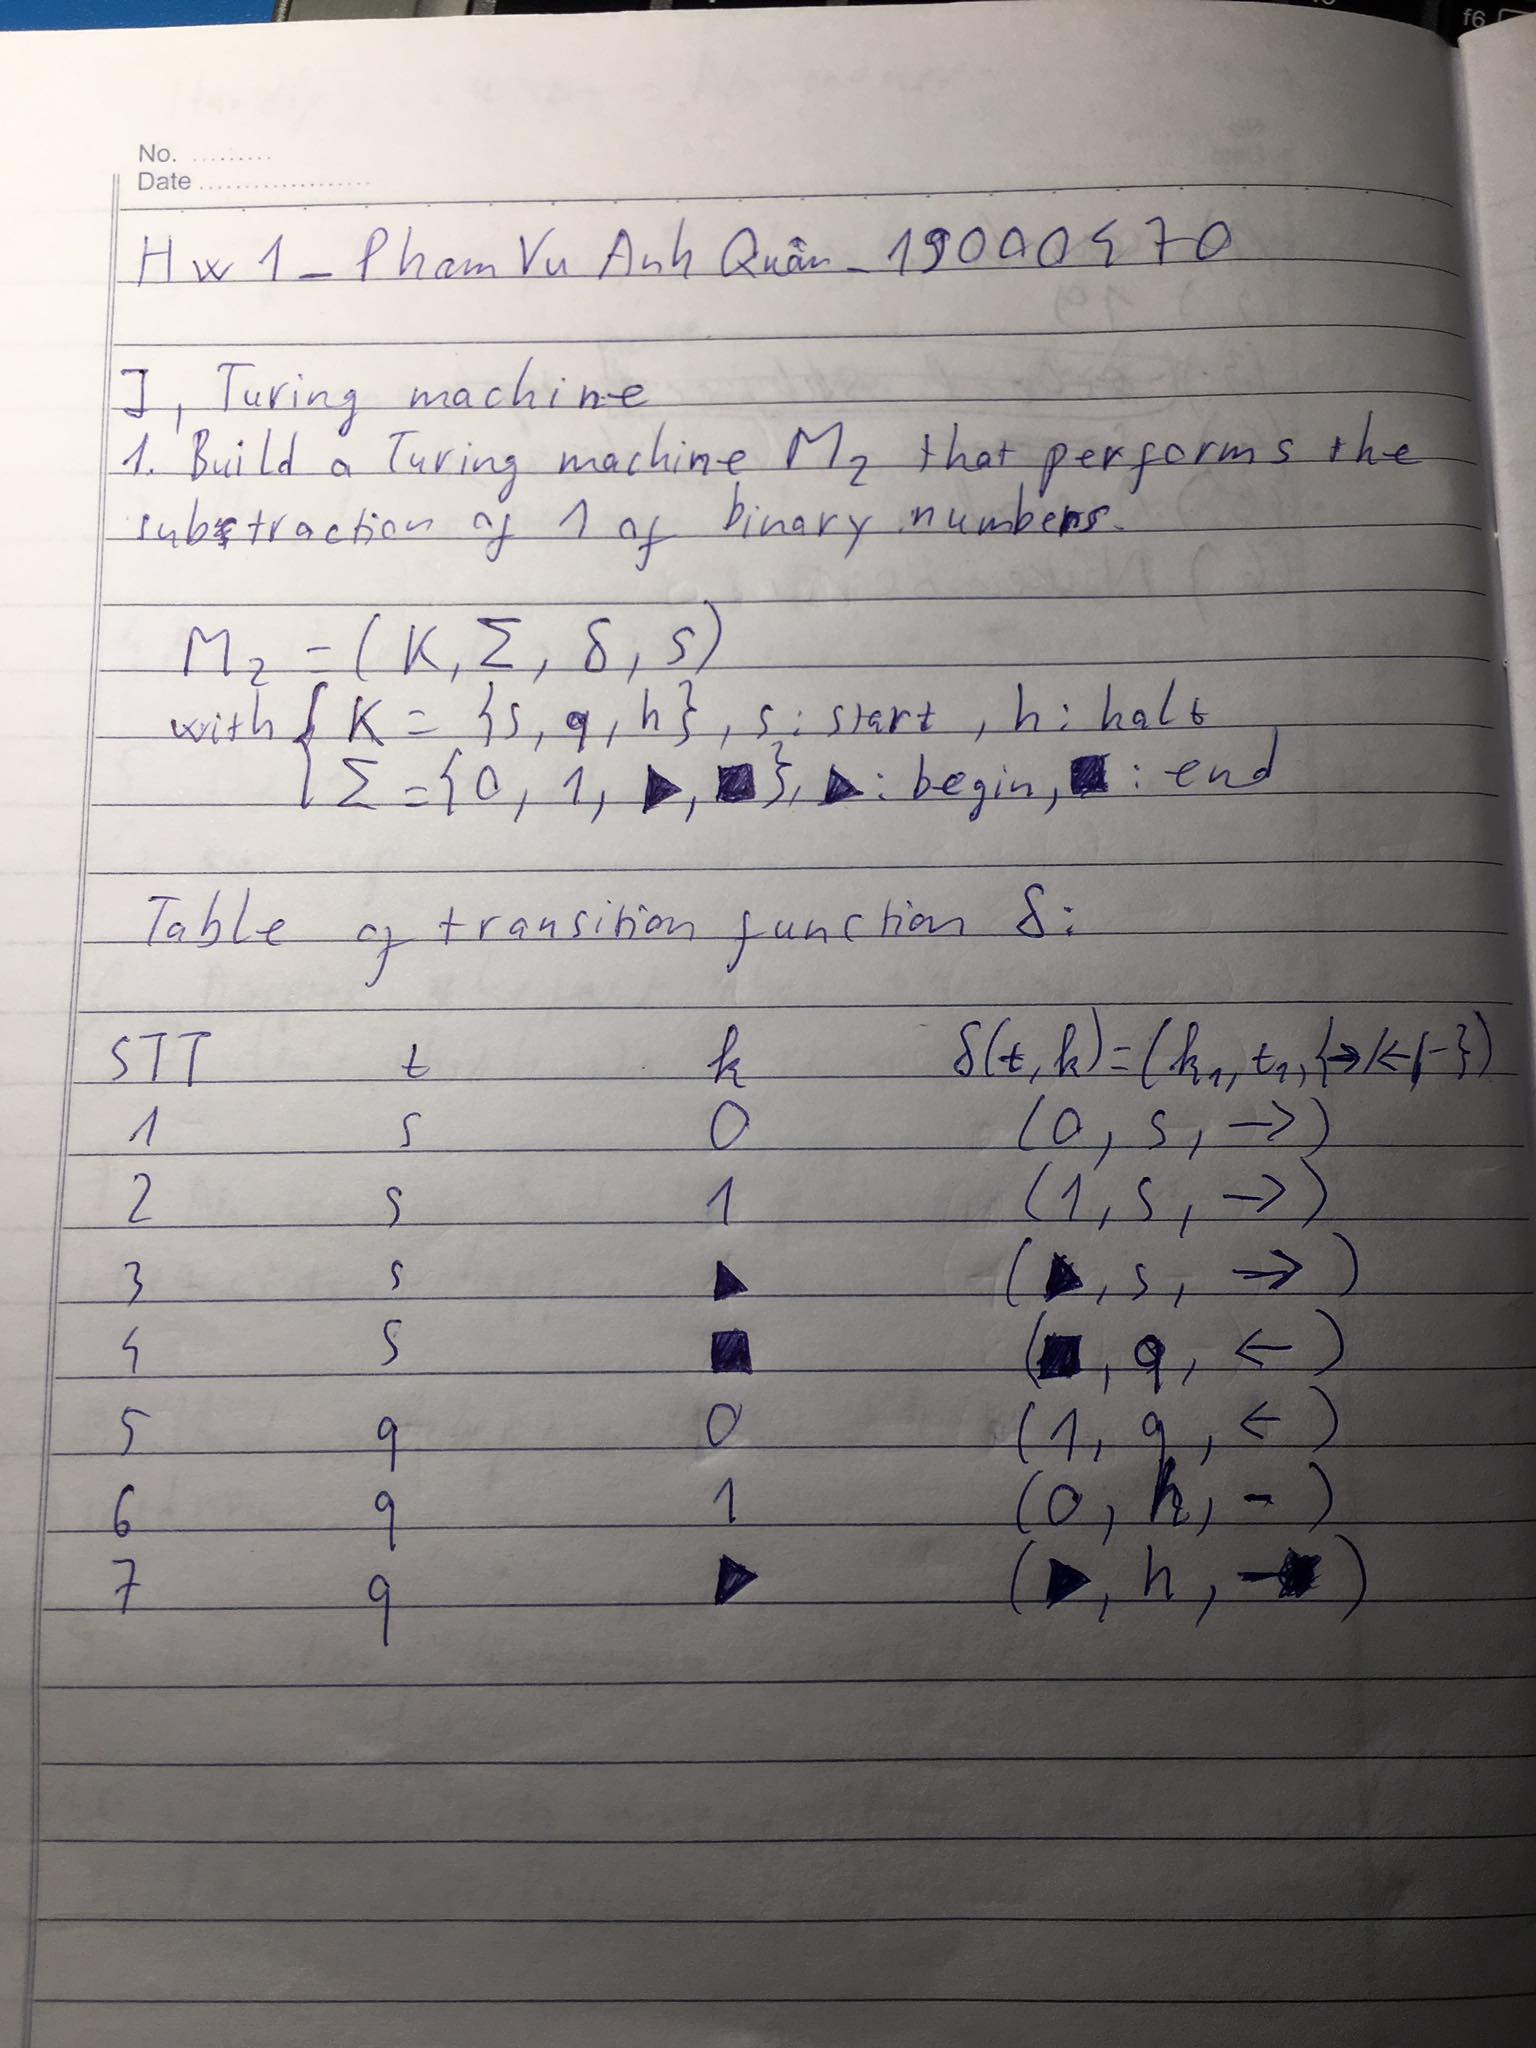 f6
No. .........
Date ...................
Hw 1 - Pham Vu Anh Quân - 19000470
I, Turing machine
1. Build a Turing machine M₂ that performs the
substraction of 1 of binary numbers.
M₂ = (K, Σ, δ, s)
with { K = {s, q, h}, s: start, h: halt
Σ = {0, 1, ▶, ■}, ▶: begin, ■: end
Table of transition function δ:
STT t k δ(t, k) = (k₁, t₁, {→/←/-})
1 s 0 (0, s, →)
2 s 1 (1, s, →)
3 s ▶ (▶, s, →)
4 s ■ (■, q, ←)
5 q 0 (1, q, ←)
6 q 1 (0, h, -)
7 q ▶ (▶, h, -)